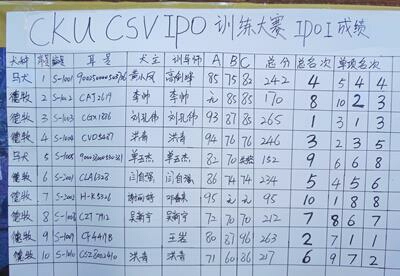 CKU CSV IPO 训练大赛 IPO I 成绩
犬种 序号 编号 耳号 犬主 训导师 A B C 总分 总名次 单项名次
马犬 1 S-1001 黄小凤 85 75 82 242 4 5 4 4
德牧 2 S-1002 CAJ2619 李帅 李帅 元 85 85 170 8 10 2 3
德牧 3 S-1003 刘孔伟 刘孔伟 93 87 85 265 1 3 1 3
德牧 4 S-1004 洪青 洪青 94 76 76 246 3 2 3 5
马犬 5 S-1005 单玉杰 单玉杰 82 70 152 9 6 6 8
德牧 6 S-1006 CLA6328 闫自强 闫自强 86 74 74 234 5 4 5 6
德牧 7 S-1007 95 元 元 95 10 1 8 8
德牧 8 S-1008 CZT7912 吴新宇 吴新宇 72 70 70 212 7 8 6 7
德牧 9 S-1009 CF4419B 王岩 80 87 96 263 2 7 1 1
德牧 10 S-1010 CSZ8002410 洪青 洪青 71 60 86 217 6 9 7 2